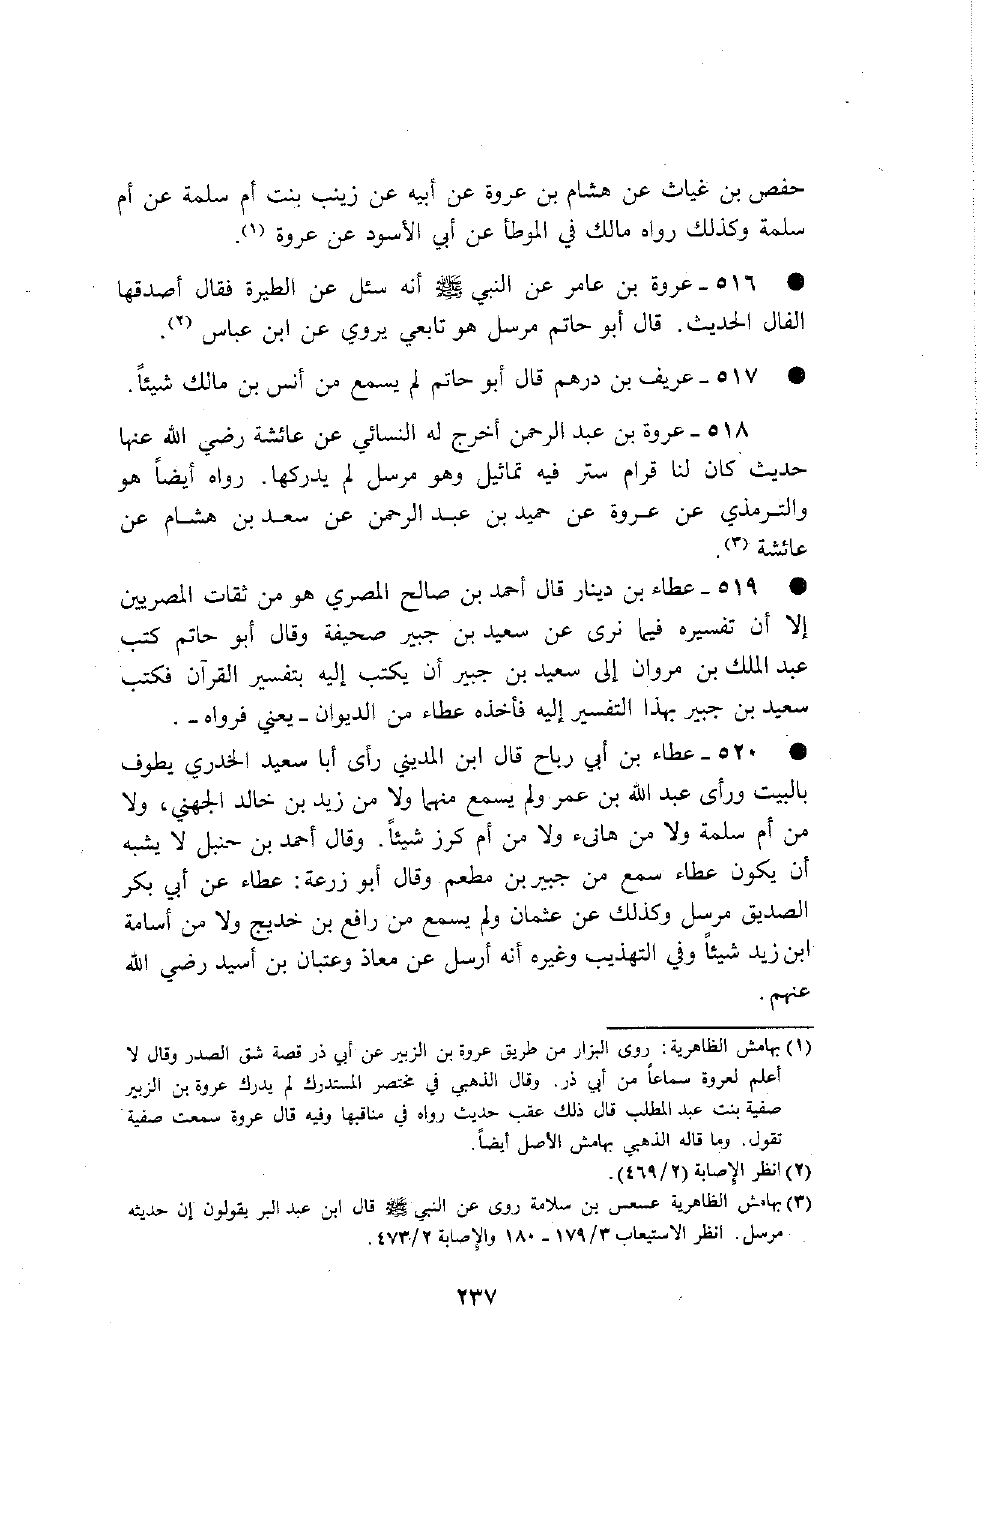 حفص بن غياث عن هشام بن عروة عن أبيه عن زينب بنت أم سلمة عن أم
سلمة وكذلك رواه مالك في الموطأ عن أبي الأسود عن عروة (١).
● ٥١٦ ـ عروة بن عامر عن النبي ﷺ أنه سئل عن الطيرة فقال أصدقها
الفال الحديث. قال أبو حاتم مرسل هو تابعي يروي عن ابن عباس (٢).
● ٥١٧ ـ عريف بن درهم قال أبو حاتم لم يسمع من أنس بن مالك شيئاً.
٥١٨ ـ عروة بن عبد الرحمن أخرج له النسائي عن عائشة رضي الله عنها
حديث كان لنا قرام ستر فيه تماثيل وهو مرسل لم يدركها. رواه أيضاً هو
والترمذي عن عروة عن حميد بن عبد الرحمن عن سعد بن هشام عن
عائشة (٣).
● ٥١٩ ـ عطاء بن دينار قال أحمد بن صالح المصري هو من ثقات المصريين
إلا أن تفسيره فيما نرى عن سعيد بن جبير صحيفة وقال أبو حاتم كتب
عبد الملك بن مروان إلى سعيد بن جبير أن يكتب إليه بتفسير القرآن فكتب
سعيد بن جبير بهذا التفسير إليه فأخذه عطاء من الديوان ـ يعني فرواه ـ .
● ٥٢٠ ـ عطاء بن أبي رباح قال ابن المديني رأى أبا سعيد الخدري يطوف
بالبيت ورأى عبد الله بن عمر ولم يسمع منهما ولا من زيد بن خالد الجهني، ولا
من أم سلمة ولا من هانىء ولا من أم كرز شيئاً. وقال أحمد بن حنبل لا يشبه
أن يكون عطاء سمع من جبير بن مطعم وقال أبو زرعة: عطاء عن أبي بكر
الصديق مرسل وكذلك عن عثمان ولم يسمع من رافع بن خديج ولا من أسامة
ابن زيد شيئاً وفي التهذيب وغيره أنه أرسل عن معاذ وعتبان بن أسيد رضي الله
عنهم.
(١) بهامش الظاهرية: روى البزار من طريق عروة بن الزبير عن أبي ذر قصة شق الصدر وقال لا
أعلم لعروة سماعاً من أبي ذر. وقال الذهبي في مختصر المستدرك لم يدرك عروة بن الزبير
صفية بنت عبد المطلب قال ذلك عقب حديث رواه في مناقبها وفيه قال عروة سمعت صفية
تقول. وما قاله الذهبي بهامش الأصل أيضاً.
(٢) انظر الإصابة (٤٦٩/٢).
(٣) بهامش الظاهرية عسعس بن سلامة روى عن النبي ﷺ قال ابن عبد البر يقولون إن حديثه
مرسل. انظر الاستيعاب ١٧٩/٣ ـ ١٨٠ والإصابة ٤٧٣/٢.
٢٣٧